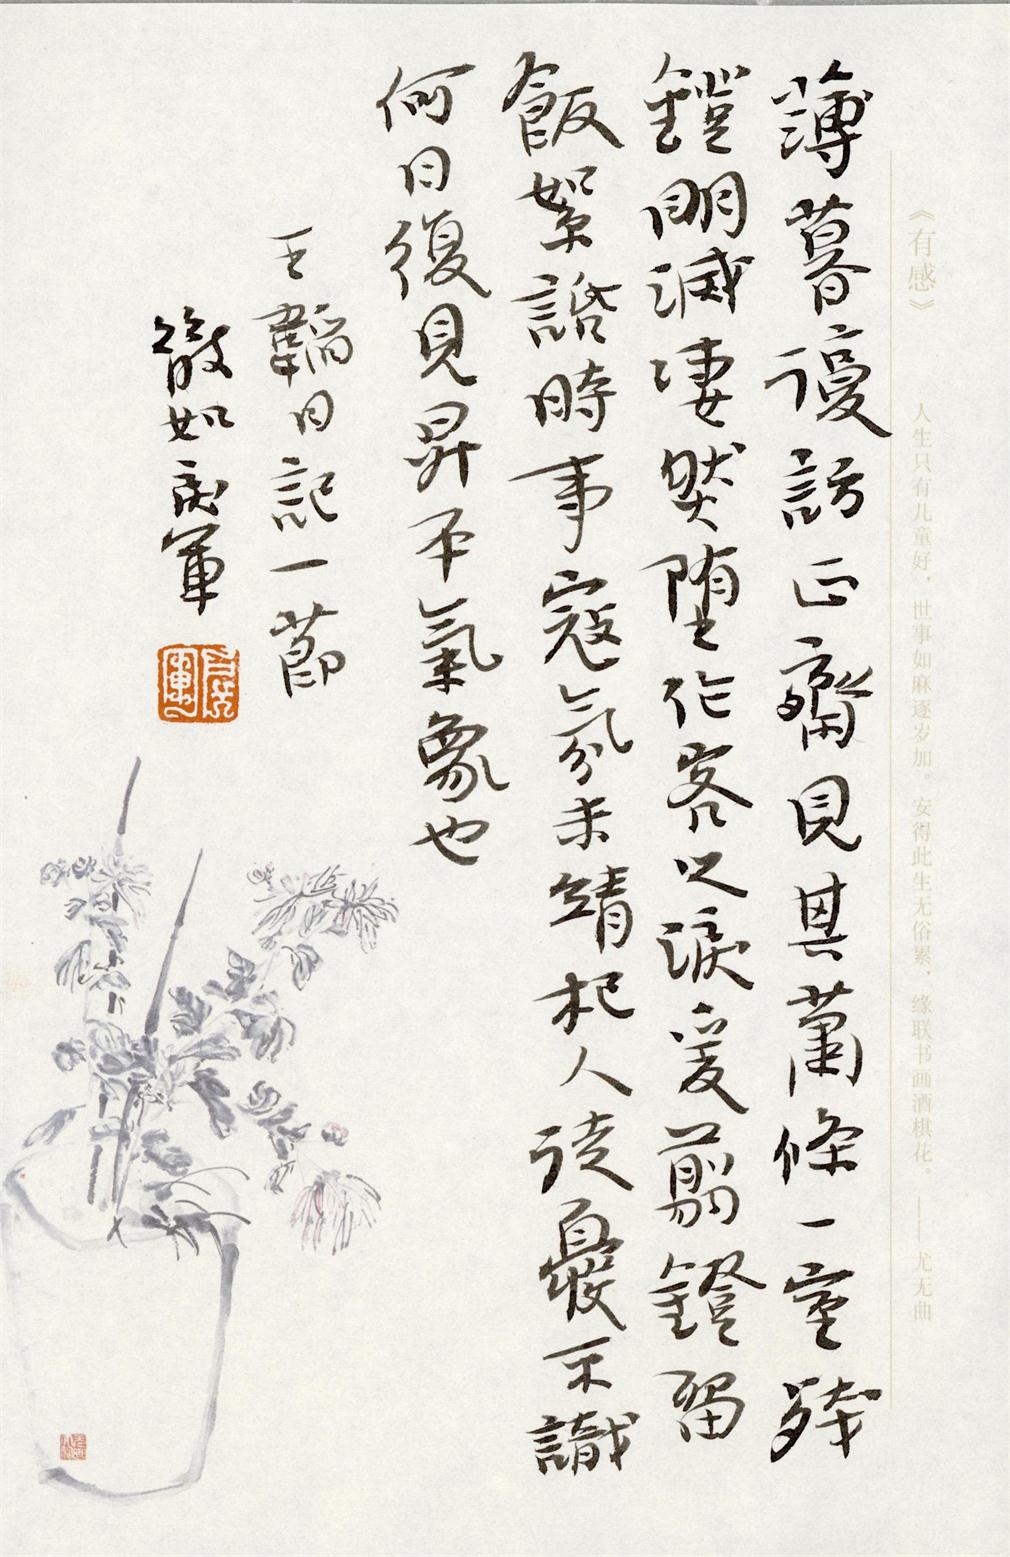 《有感》 人生只有儿童好，世事如麻逐岁加。安得此生无俗累，缘联书画酒棋花。——尤无曲
薄暮復訪正齋見其蕭條一室殘
鐙明滅凄然堕作客之淚爰剪鐙留
飯絮話時事寇氛未靖杞人徒憂不識
何日復見昇平氣象也
王韜日記一節
如軍